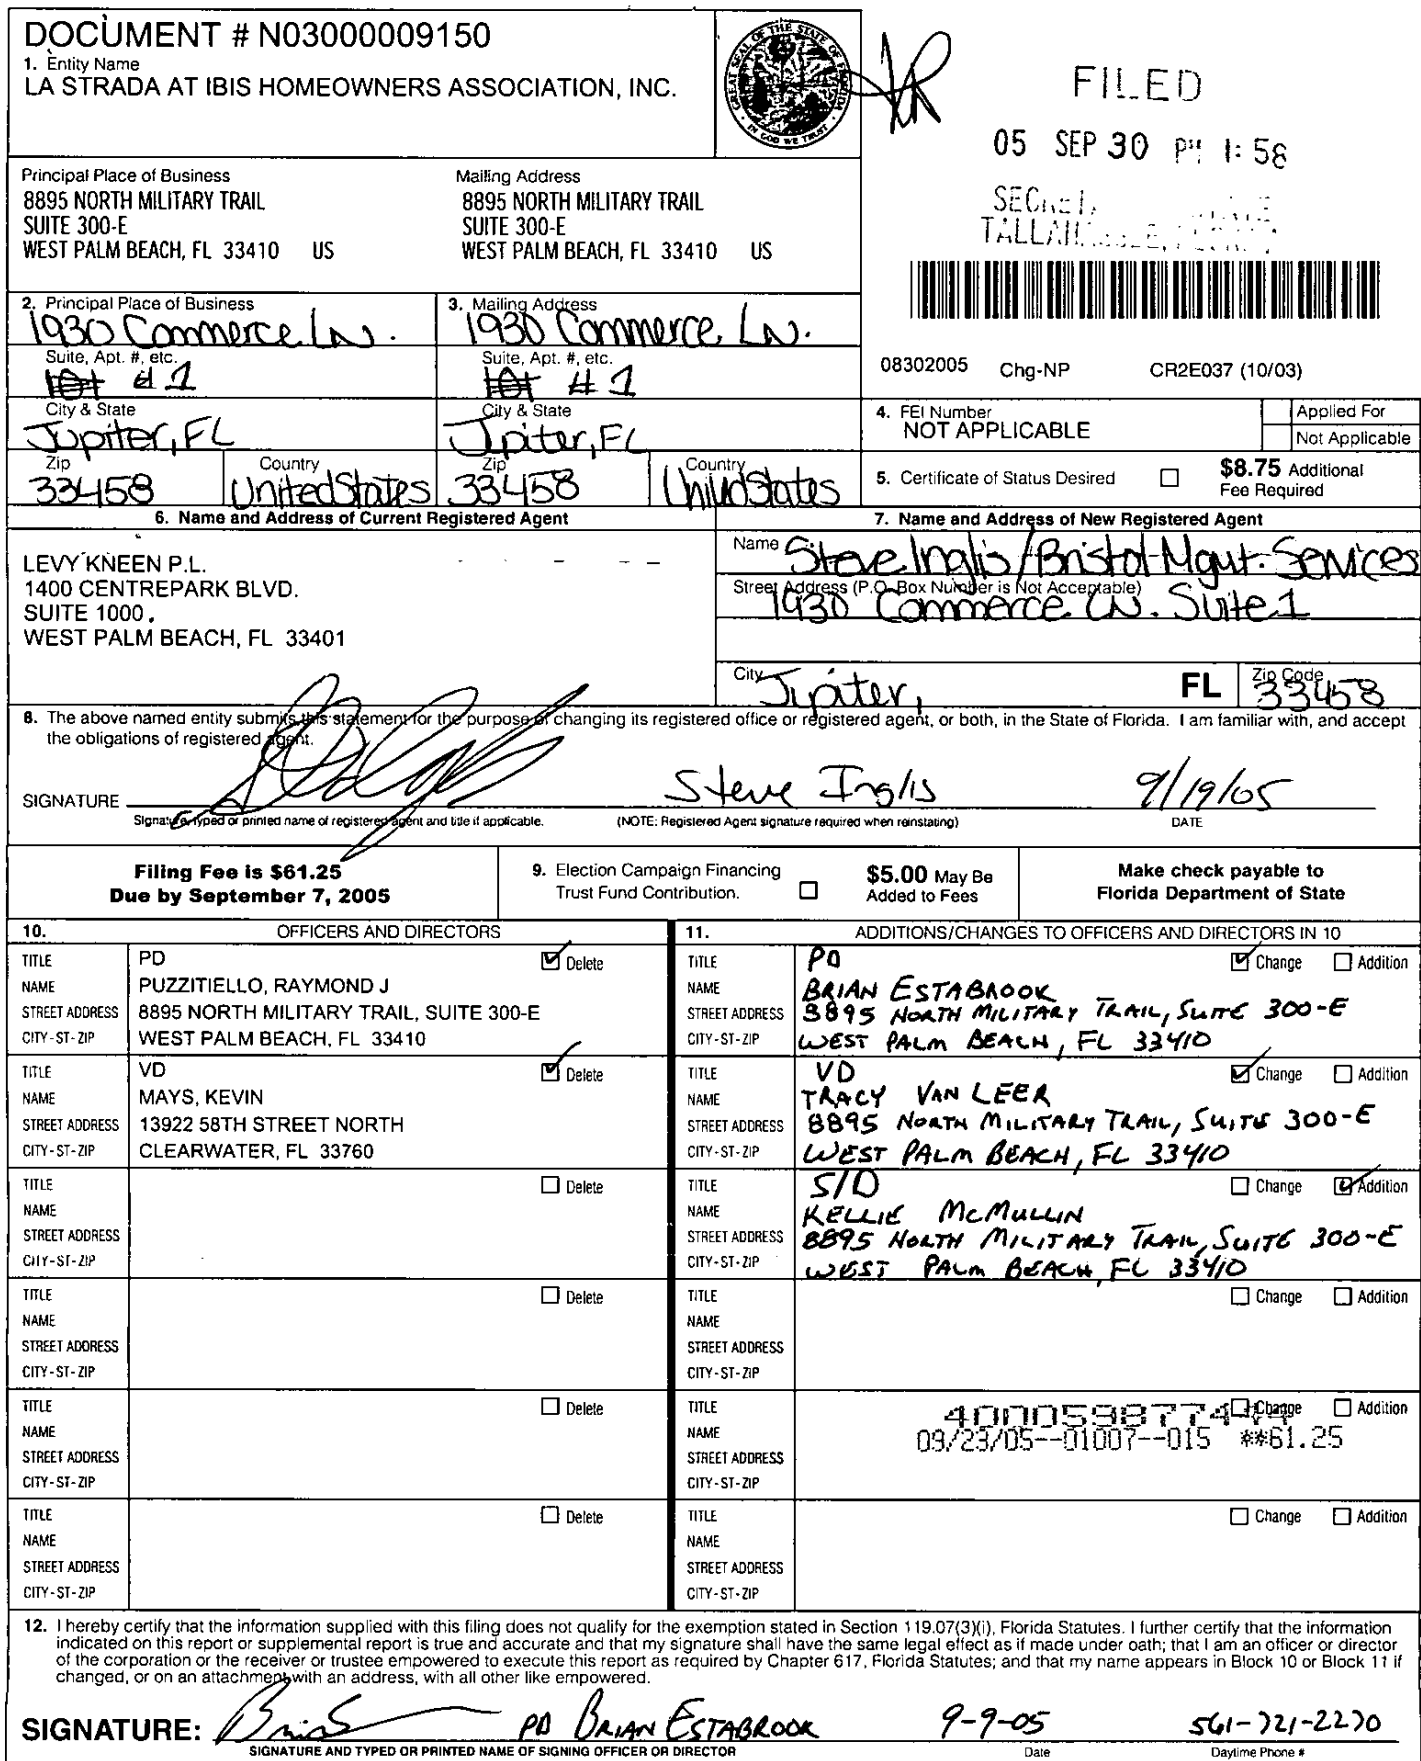 DOCUMENT # N03000009150
1. Entity Name
LA STRADA AT IBIS HOMEOWNERS ASSOCIATION, INC.
GREAT SEAL OF THE STATE OF FLORIDA
IN GOD WE TRUST
FILED
05 SEP 30 PM 1:58
Principal Place of Business
8895 NORTH MILITARY TRAIL
SUITE 300-E
WEST PALM BEACH, FL 33410 US
Mailing Address
8895 NORTH MILITARY TRAIL
SUITE 300-E
WEST PALM BEACH, FL 33410 US
2. Principal Place of Business
1930 Commerce LN.
Suite, Apt. #, etc.
# 1
City & State
Jupiter, FL
Zip
33458
Country
United States
3. Mailing Address
1930 Commerce LN.
Suite, Apt. #, etc.
# 1
City & State
Jupiter, FL
Zip
33458
Country
United States
08302005 Chg-NP CR2E037 (10/03)
4. FEI Number
NOT APPLICABLE
Applied For
Not Applicable
5. Certificate of Status Desired
$8.75 Additional
Fee Required
6. Name and Address of Current Registered Agent
LEVY KNEEN P.L.
1400 CENTREPARK BLVD.
SUITE 1000.
WEST PALM BEACH, FL 33401
7. Name and Address of New Registered Agent
Name Steve Inglis / Bristol Mgmt. Services
Street Address (P.O. Box Number is Not Acceptable)
1930 Commerce LN. Suite 1
City Jupiter, FL Zip Code 33458
8. The above named entity submits this statement for the purpose of changing its registered office or registered agent, or both, in the State of Florida. I am familiar with, and accept
the obligations of registered agent.
SIGNATURE Steve Inglis 9/19/05
Signature, typed or printed name of registered agent and title if applicable. (NOTE: Registered Agent signature required when reinstating) DATE
Filing Fee is $61.25
Due by September 7, 2005
9. Election Campaign Financing
Trust Fund Contribution.
$5.00 May Be
Added to Fees
Make check payable to
Florida Department of State
10. OFFICERS AND DIRECTORS
TITLE PD Delete
NAME PUZZITIELLO, RAYMOND J
STREET ADDRESS 8895 NORTH MILITARY TRAIL, SUITE 300-E
CITY-ST-ZIP WEST PALM BEACH, FL 33410
TITLE VD Delete
NAME MAYS, KEVIN
STREET ADDRESS 13922 58TH STREET NORTH
CITY-ST-ZIP CLEARWATER, FL 33760
TITLE Delete
NAME
STREET ADDRESS
CITY-ST-ZIP
TITLE Delete
NAME
STREET ADDRESS
CITY-ST-ZIP
TITLE Delete
NAME
STREET ADDRESS
CITY-ST-ZIP
TITLE Delete
NAME
STREET ADDRESS
CITY-ST-ZIP
11. ADDITIONS/CHANGES TO OFFICERS AND DIRECTORS IN 10
TITLE PD Change Addition
NAME BRIAN ESTABROOK
STREET ADDRESS 8895 NORTH MILITARY TRAIL, SUITE 300-E
CITY-ST-ZIP WEST PALM BEACH, FL 33410
TITLE VD Change Addition
NAME TRACY VAN LEER
STREET ADDRESS 8895 NORTH MILITARY TRAIL, SUITE 300-E
CITY-ST-ZIP WEST PALM BEACH, FL 33410
TITLE S/D Change Addition
NAME KELLIE MCMULLIN
STREET ADDRESS 8895 NORTH MILITARY TRAIL, SUITE 300-E
CITY-ST-ZIP WEST PALM BEACH, FL 33410
TITLE Change Addition
NAME
STREET ADDRESS
CITY-ST-ZIP
TITLE Change Addition
NAME 09/23/05--01007--015 **61.25
STREET ADDRESS
CITY-ST-ZIP
TITLE Change Addition
NAME
STREET ADDRESS
CITY-ST-ZIP
12. I hereby certify that the information supplied with this filing does not qualify for the exemption stated in Section 119.07(3)(i), Florida Statutes. I further certify that the information
indicated on this report or supplemental report is true and accurate and that my signature shall have the same legal effect as if made under oath; that I am an officer or director
of the corporation or the receiver or trustee empowered to execute this report as required by Chapter 617, Florida Statutes; and that my name appears in Block 10 or Block 11 if
changed, or on an attachment with an address, with all other like empowered.
SIGNATURE: PD BRIAN ESTABROOK 9-9-05 561-721-2270
SIGNATURE AND TYPED OR PRINTED NAME OF SIGNING OFFICER OR DIRECTOR Date Daytime Phone #